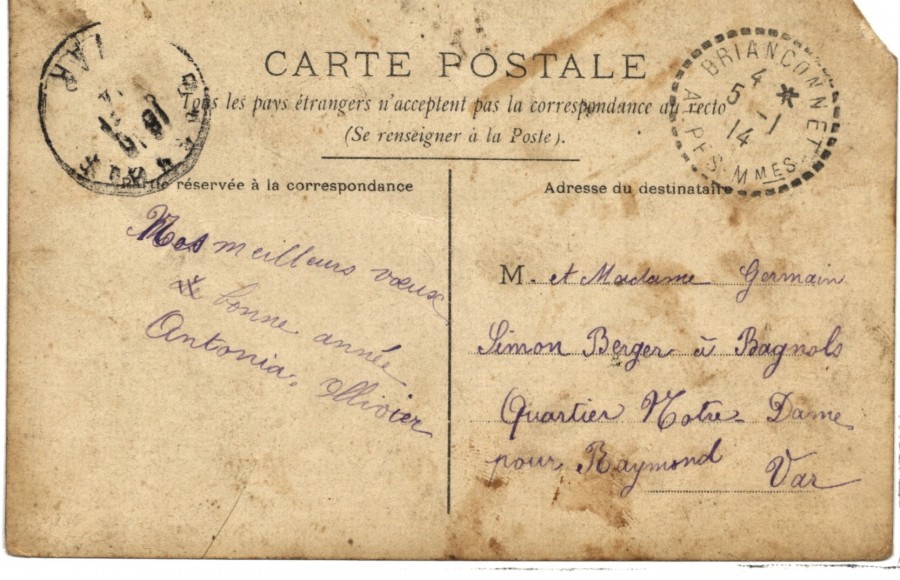 CARTE POSTALE
Tous les pays étrangers n'acceptent pas la correspondance au recto
(Se renseigner à la Poste).
réservée à la correspondance
Adresse du destinataire
BRIANÇONNET
4 *
5 -1
14
ALPES-MMES
VAR
Mes meilleurs vœux
de bonne année
Antonia. Ollivier
M. et Madame Germain
Simon Berger à Bagnols
Quartier Notre-Dame
pour Raymond
Var